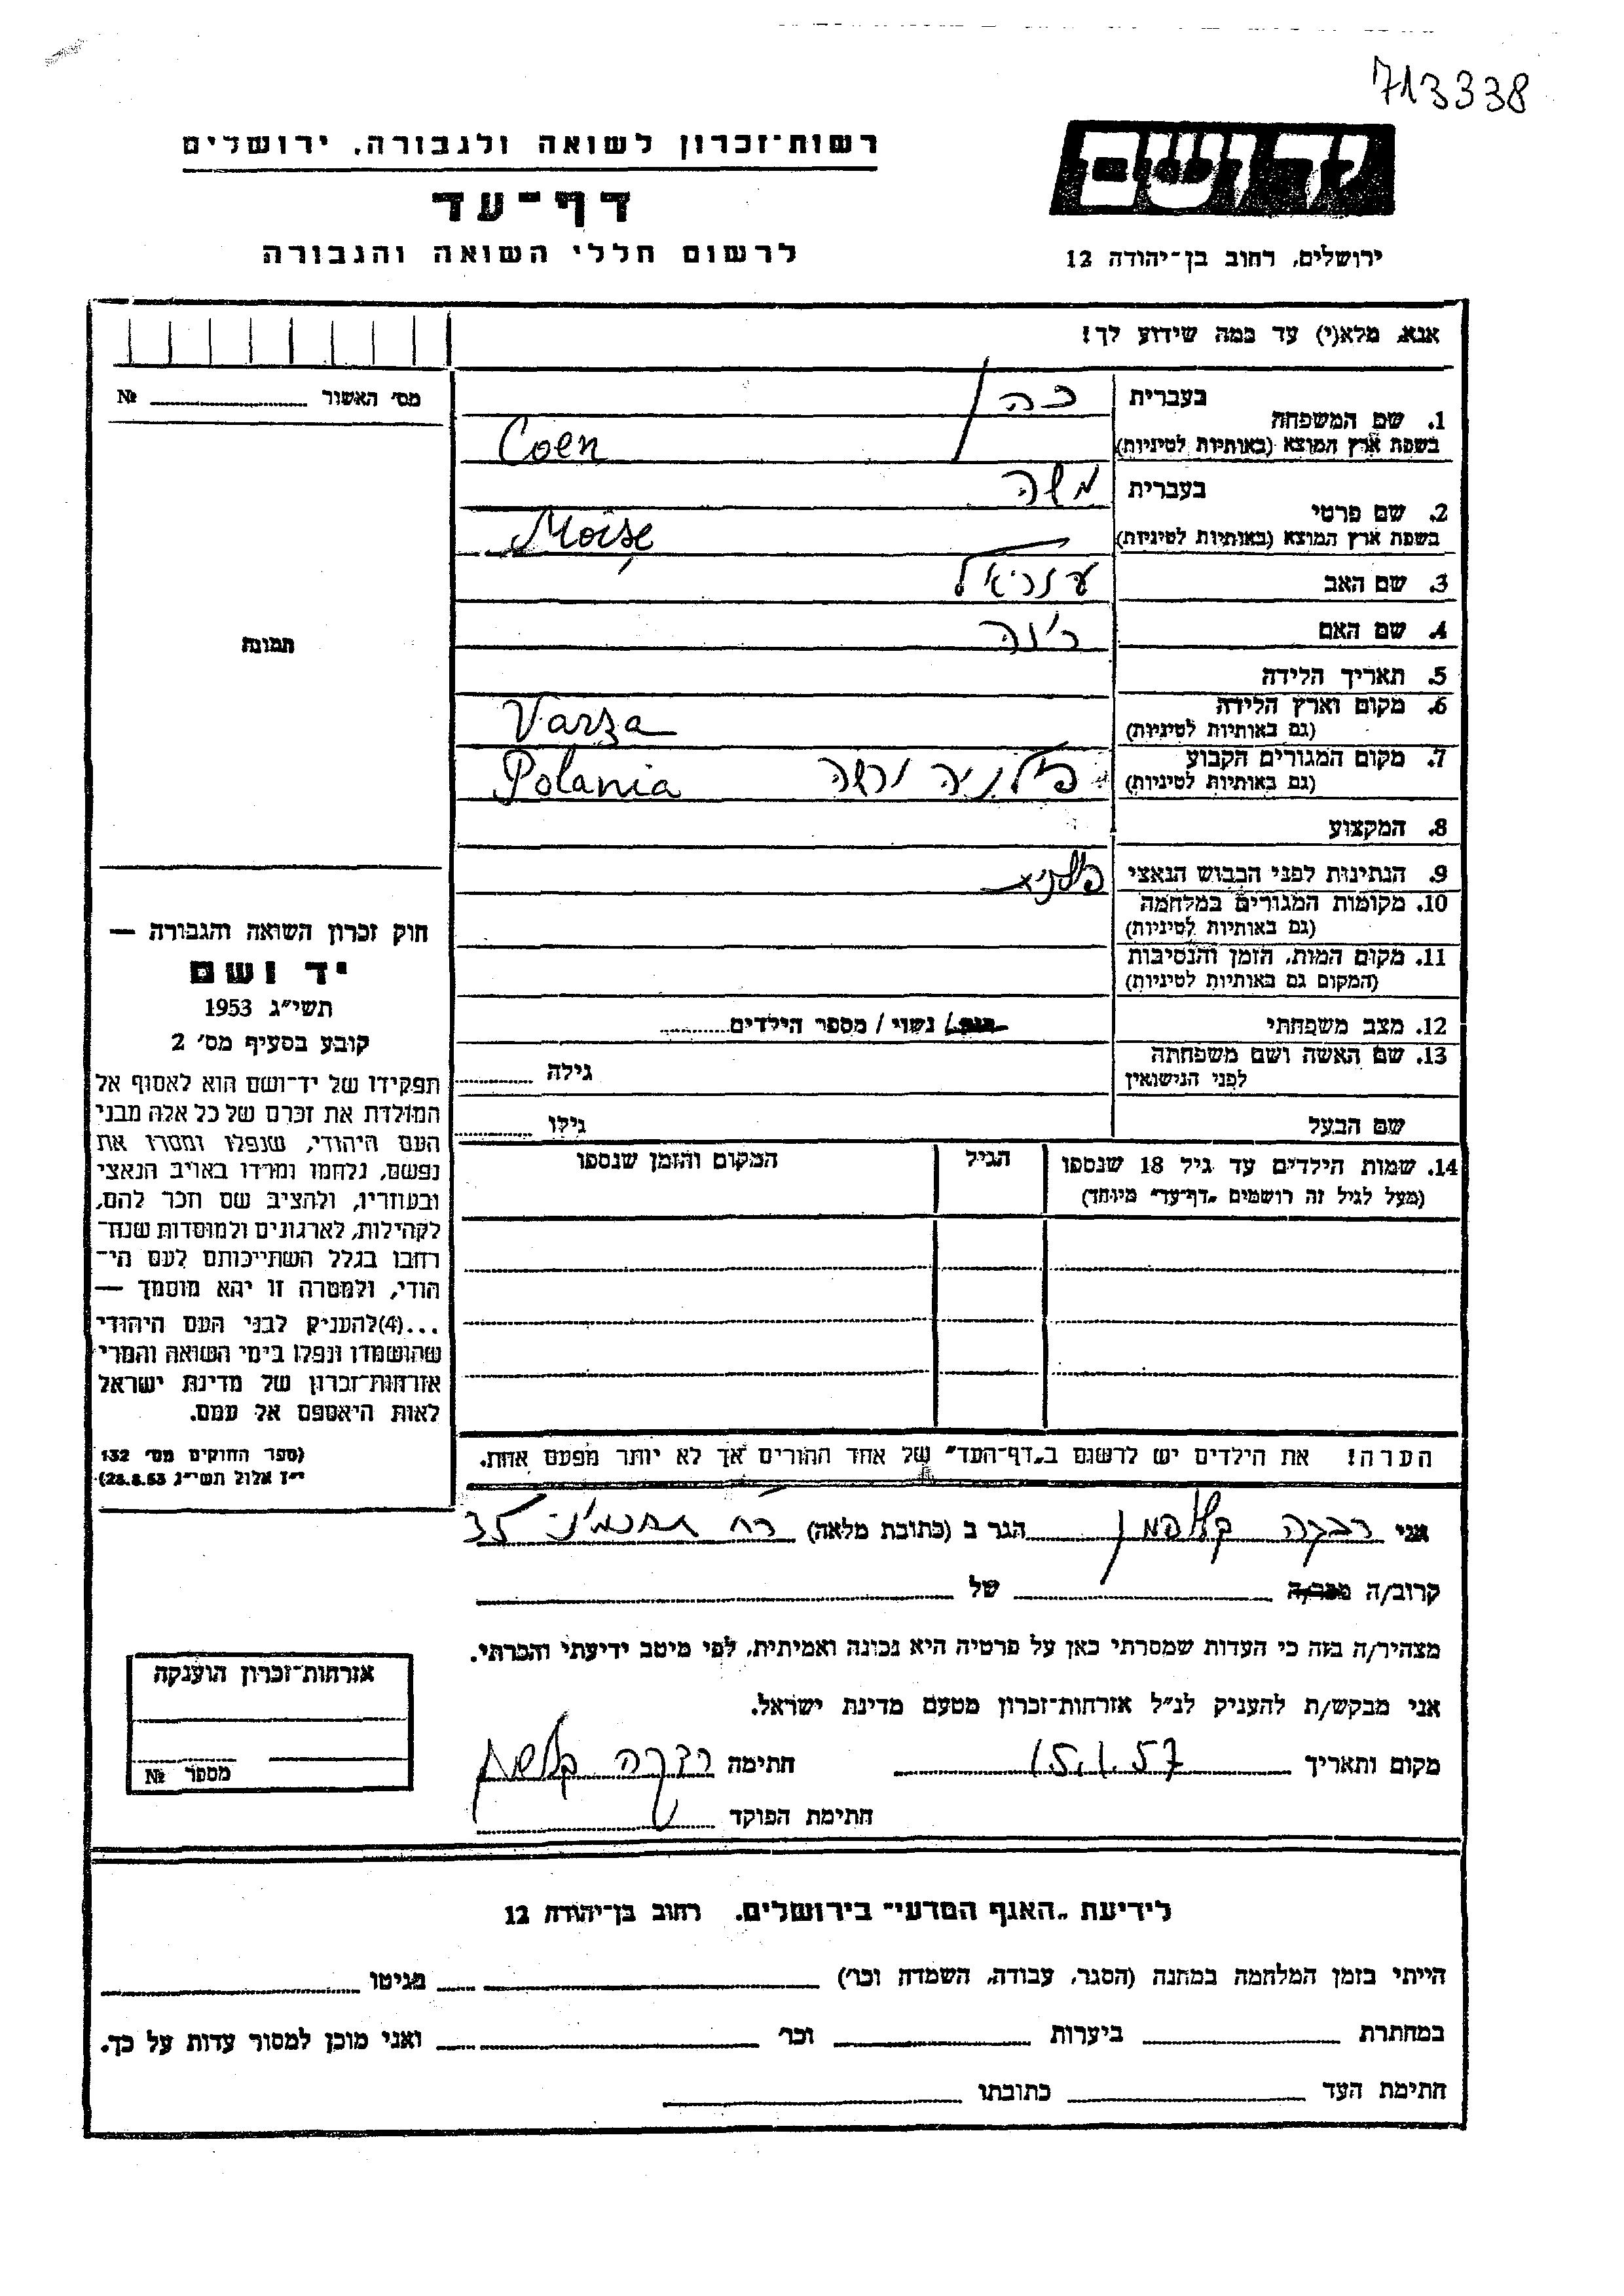 713338
יד ושם
רשות־זכרון לשואה ולגבורה, ירושלים
דף־עד
לרשום חללי השואה והגבורה
ירושלים, רחוב בן־יהודה 12
אנא, מלא(י) עד כמה שידוע לך!
מס׳ האשור № 
1. שם המשפחה בעברית כהן
בשפת ארץ המוצא (באותיות לטיניות) Coen
2. שם פרטי בעברית משה
בשפת ארץ המוצא (באותיות לטיניות) Moise
3. שם האב עזריאל
4. שם האם
5. תאריך הלידה
6. מקום וארץ הלידה
(גם באותיות לטיניות) Varza
7. מקום המגורים הקבוע פולניה ורשה Polania
(גם באותיות לטיניות)
8. המקצוע
9. הנתינות לפני הכבוש הנאצי
10. מקומות המגורים במלחמה
(גם באותיות לטיניות)
11. מקום המות, הזמן והנסיבות
(המקום גם באותיות לטיניות)
12. מצב משפחתי רווק / נשוי / מספר הילדים
13. שם האשה ושם משפחתה גילה
לפני הנישואין
שם הבעל גילו
14. שמות הילדים עד גיל 18 שנספו הגיל המקום והזמן שנספו
(מעל לגיל זה רושמים "דף־עד" מיוחד)
הערה! את הילדים יש לרשום ב"דף־העד" של אחד ההורים אך לא יותר מפעם אחת.
תמונה
חוק זכרון השואה והגבורה —
יד ושם
תשי״ג 1953
קובע בסעיף מס׳ 2
תפקידו של יד־ושם הוא לאסוף אל
המולדת את זכרם של כל אלה מבני
העם היהודי, שנפלו ומסרו את
נפשם, נלחמו ומרדו באויב הנאצי
ובעוזריו, ולהציב שם וזכר להם,
לקהילות, לארגונים ולמוסדות שנח־
רבו בגלל השתייכותם לעם הי־
הודי, ולמטרה זו יהא מוסמך —
...(4)להעניק לבני העם היהודי
שהושמדו ונפלו בימי השואה והמרי
אזרחות־זכרון של מדינת ישראל
לאות היאספם אל עמם.
(ספר החוקים מס׳ 132
י״ז אלול תשי״ג 28.8.53)
אני רבקה הגר ב (כתובת מלאה) רח 35
קרוב/ה מכר/ה של
מצהיר/ה בזה כי העדות שמסרתי כאן על פרטיה היא נכונה ואמיתית, לפי מיטב ידיעתי והכרתי.
אני מבקש/ת להעניק לנ״ל אזרחות־זכרון מטעם מדינת ישראל.
מקום ותאריך 15.1.57 חתימה רבקה
חתימת הפוקד
אזרחות־זכרון הוענקה
מספר №
לידיעת "האגף המדעי" בירושלים, רחוב בן־יהודה 12
הייתי בזמן המלחמה במחנה (הסגר, עבודה, השמדה וכו׳) בגיטו
במחתרת ביערות וכו׳ ואני מוכן למסור עדות על כך.
חתימת העד כתובתו